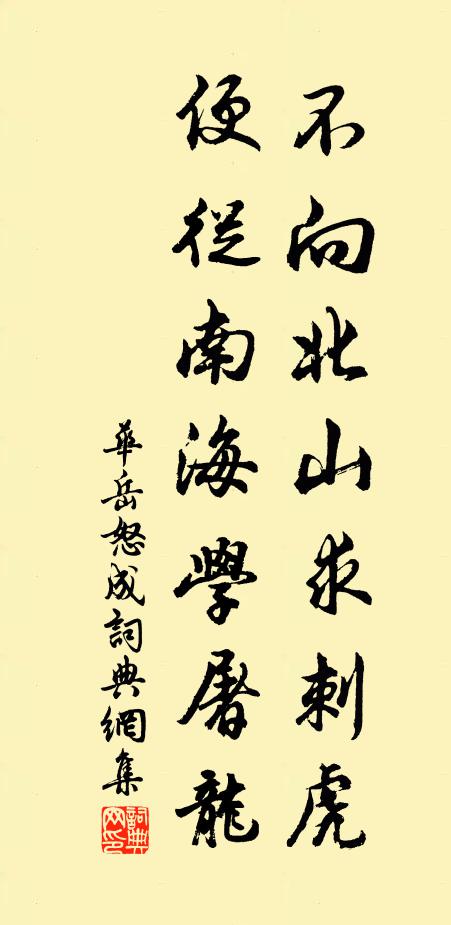 不向北山求刺虎
便從南海學屠龍
華岳怒成詞典網集
詞典網印